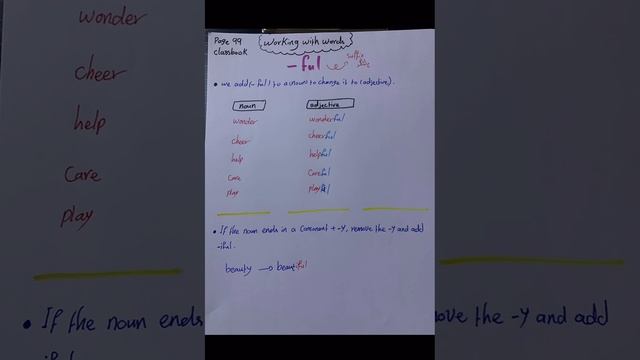 Page 99
classbook
Working with words
-ful
suffix
• we add (-ful) to a (noun) to change it to (adjective).
noun adjective
wonder wonderful
cheer cheerful
help helpful
care careful
play playful
• If the noun ends in a consonant + -y, remove the -y and add
-iful.
beauty → beautiful